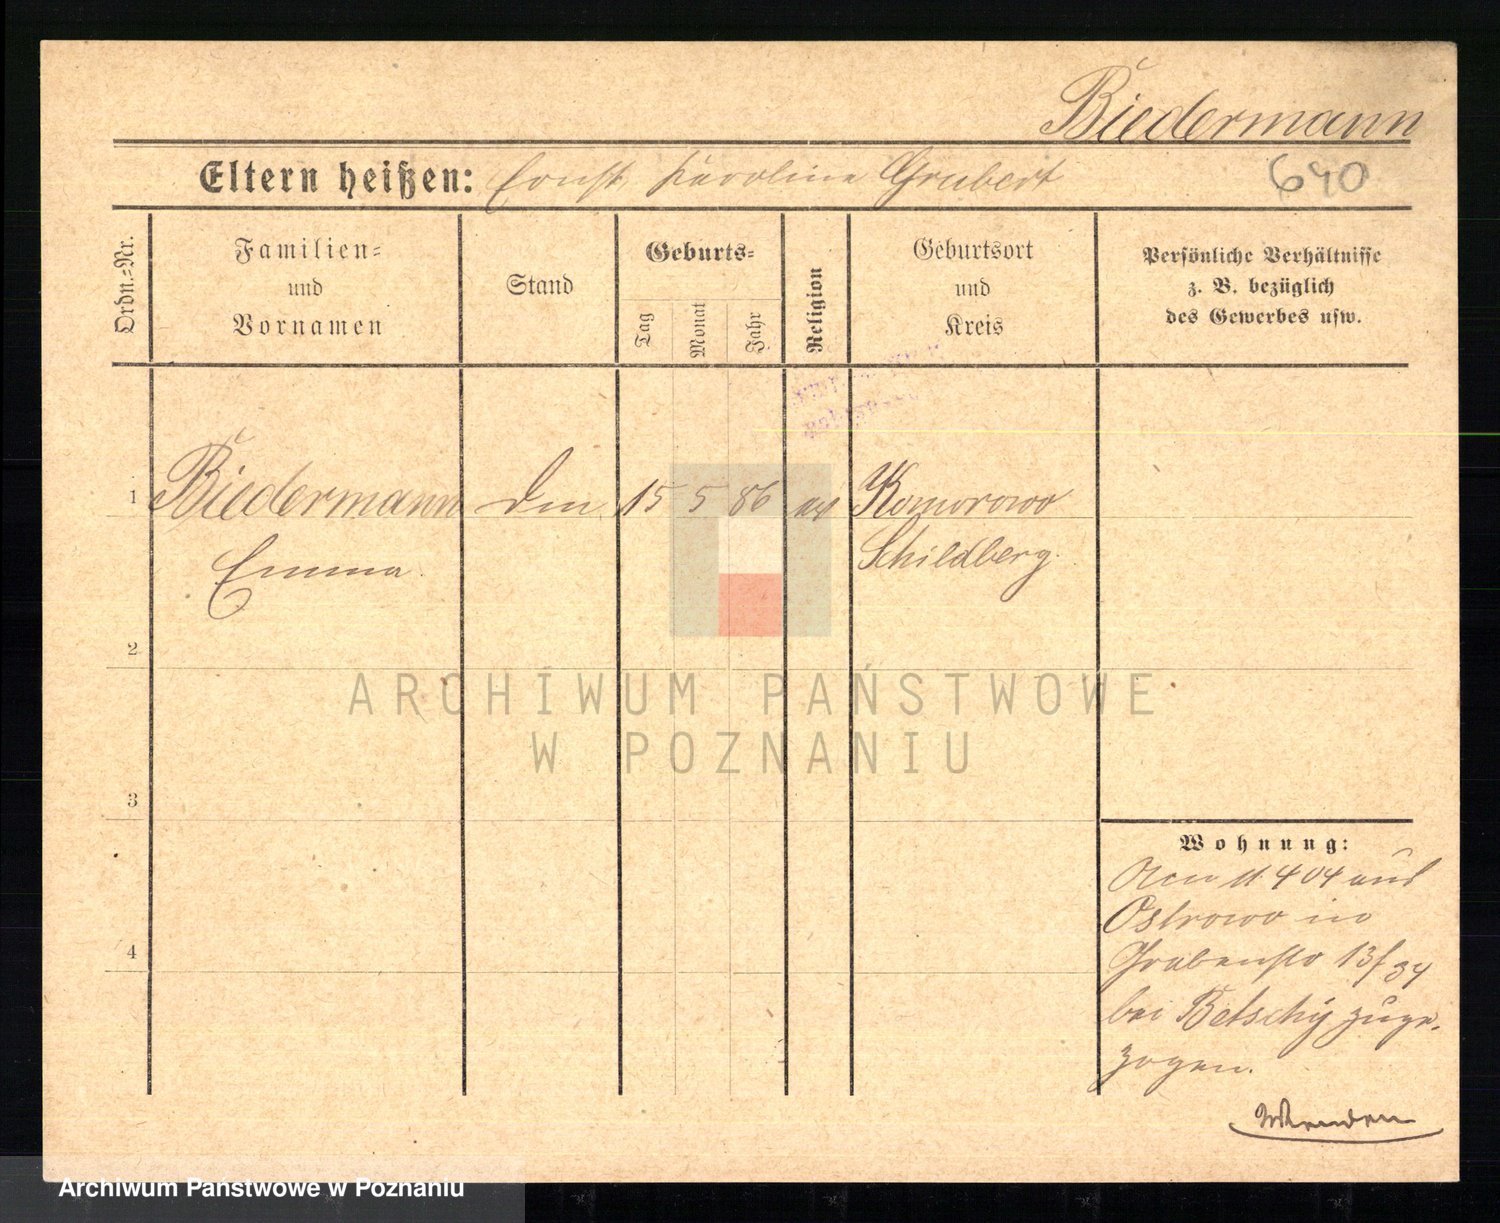 Biedermann
Eltern heißen: Ernst, Karoline Grubert
640
Ordn.=Nr.
Familien=
und
Vornamen
Stand
Geburts=
Tag
Monat
Jahr
Religion
Geburtsort
und
Kreis
Persönliche Verhältnisse
z. B. bezüglich
des Gewerbes usw.
1 Biedermann 15 5 86 Komorowo
Emma Schildberg
2
3
4
Wohnung:
11 4 04 aus
Ostrowo in
Grabenstr 13/34
bei Betschy zuge-
zogen.
ARCHIWUM PAŃSTWOWE
W POZNANIU
Archiwum Państwowe w Poznaniu